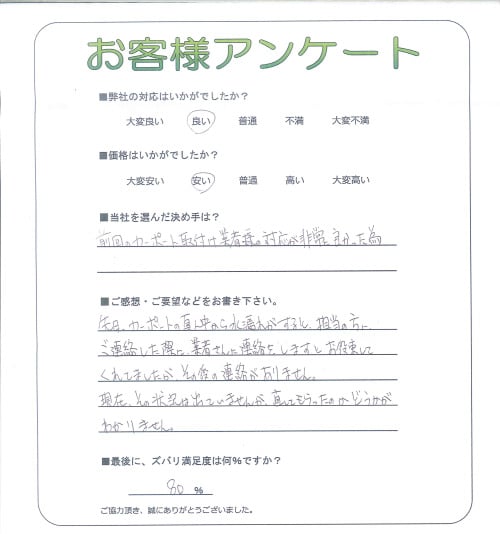 お客様アンケート
■弊社の対応はいかがでしたか?
大変良い 良い 普通 不満 大変不満
■価格はいかがでしたか?
大変安い 安い 普通 高い 大変高い
■当社を選んだ決め手は?
前回のカーポート取付け業者様の対応が非常に良かった為
■ご感想・ご要望などをお書き下さい。
先日、カーポートの真ん中から水漏れがすると、担当の方に
ご連絡した際に、業者さんに連絡をしますとお約束して
くれてましたが、その後の連絡がありません。
現在、その状況は出ていませんが、直してもらったのかどうかが
わかりません。
■最後に、ズバリ満足度は何%ですか?
80 %
ご協力頂き、誠にありがとうございました。